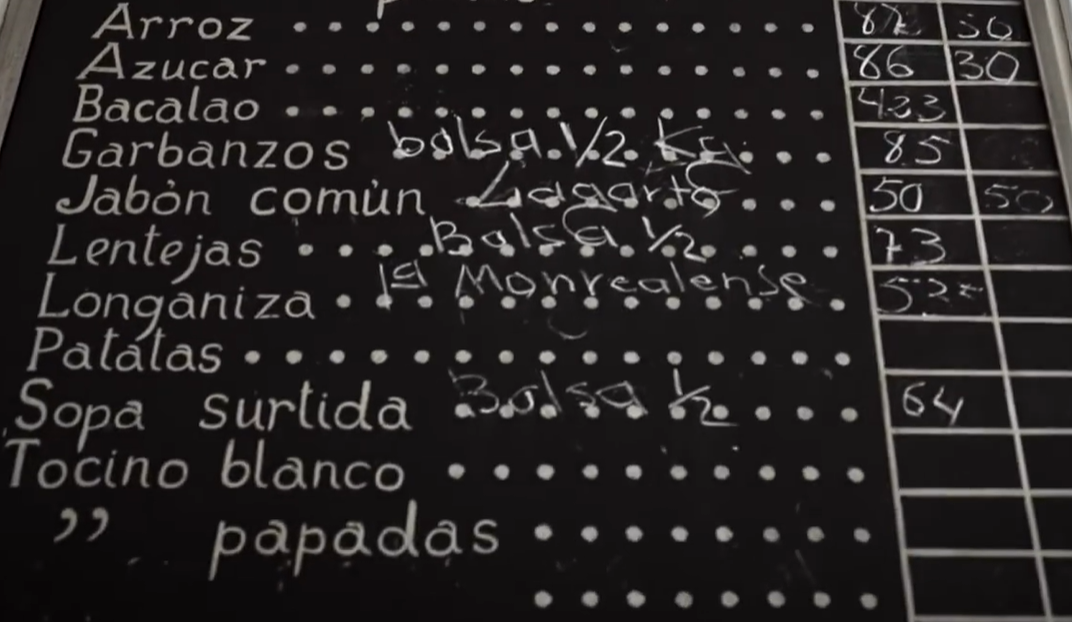 Arroz 50
Azucar 86 30
Bacalao 433
Garbanzos bolsa 1/2 Kg. 85
Jabón común Lagarto 50 50
Lentejas Bolsa 1/2 73
Longaniza 1ª Monrealense
Patatas
Sopa surtida Bolsa 1/2 64
Tocino blanco
” papadas